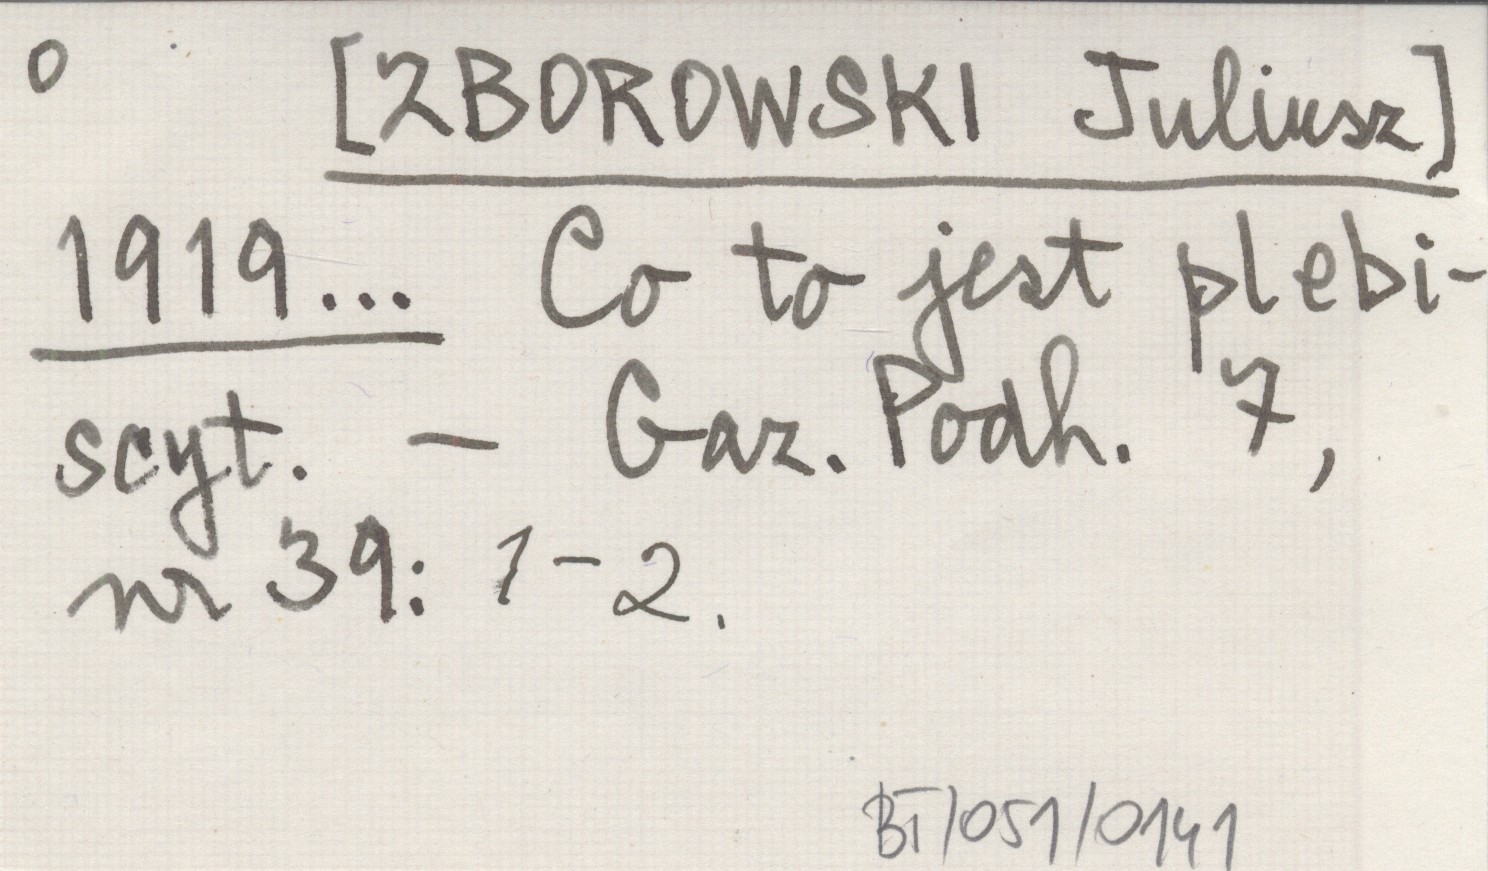 o [ZBOROWSKI Juliusz]
1919... Co to jest plebi-
scyt. - Gaz. Podh. 7,
nr 39: 1-2.
BT/051/0141